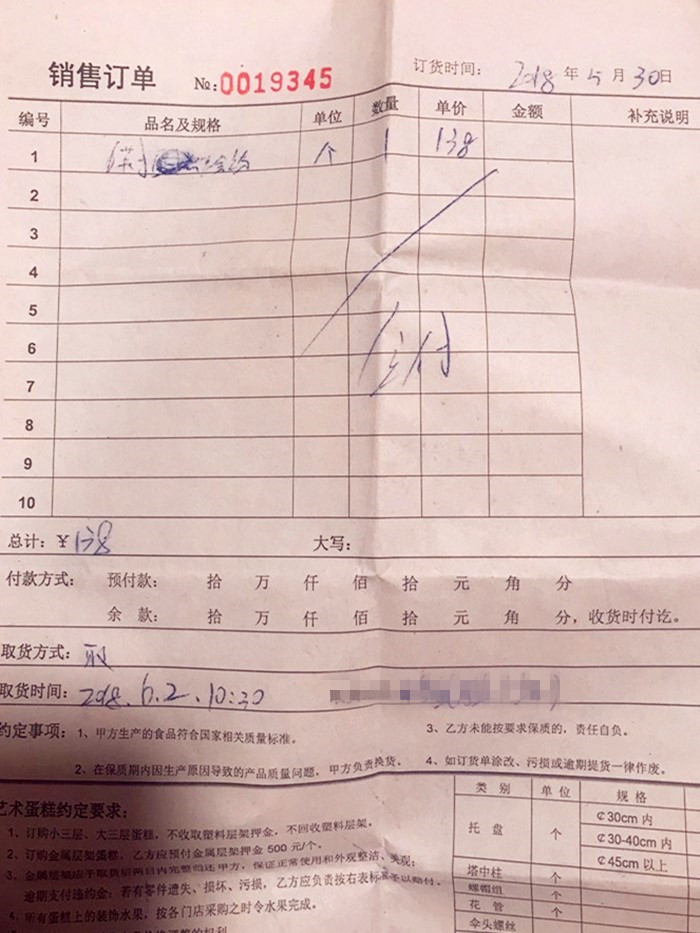 销售订单 №:0019345 订货时间: 2018 年 5 月 30 日
编号 品名及规格 单位 数量 单价 金额 补充说明
1 个 1 138
2
3
4
5
6
全付
7
8
9
10
总计:¥ 138 大写:
付款方式: 预付款: 拾 万 仟 佰 拾 元 角 分
余 款: 拾 万 仟 佰 拾 元 角 分,收货时付讫。
取货方式: 取
取货时间: 2018.6.2.10:30
约定事项: 1、甲方生产的食品符合国家相关质量标准。 3、乙方未能按要求保质的,责任自负。
2、在保质期内因生产原因导致的产品质量问题,甲方负责换货。 4、如订货单涂改、污损或逾期提货一律作废。
艺术蛋糕约定要求:
1、订购小三层、大三层蛋糕,不收取塑料层架押金,不回收塑料层架。
2、订购金属层架蛋糕,乙方应预付金属层架押金 500 元/个。
3、金属层架应于取货后两日内完整归还甲方,保证正常使用和外观整洁、美观;
逾期支付违约金;若有零件遗失、损坏、污损,乙方应负责按右表标准予以赔付。
4、所有蛋糕上的装饰水果,按各门店采购之时令水果完成。
类 别 单 位 规 格
托 盘 个 ¢30cm 内
¢30-40cm 内
¢45cm 以上
塔中柱 个
螺帽组 个
花 管 个
伞头螺丝